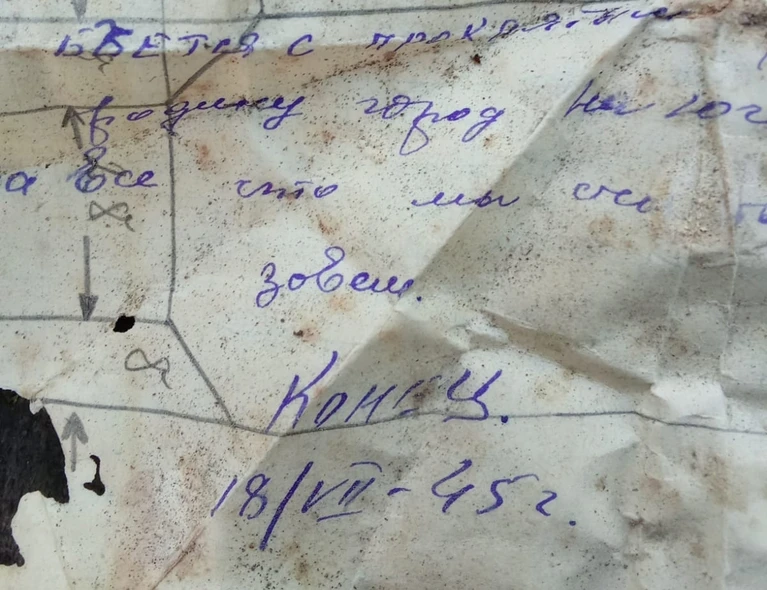 бьется с проклятым
родину город на юг
а все что мы
зовем.
Конец.
18/VII-45г.